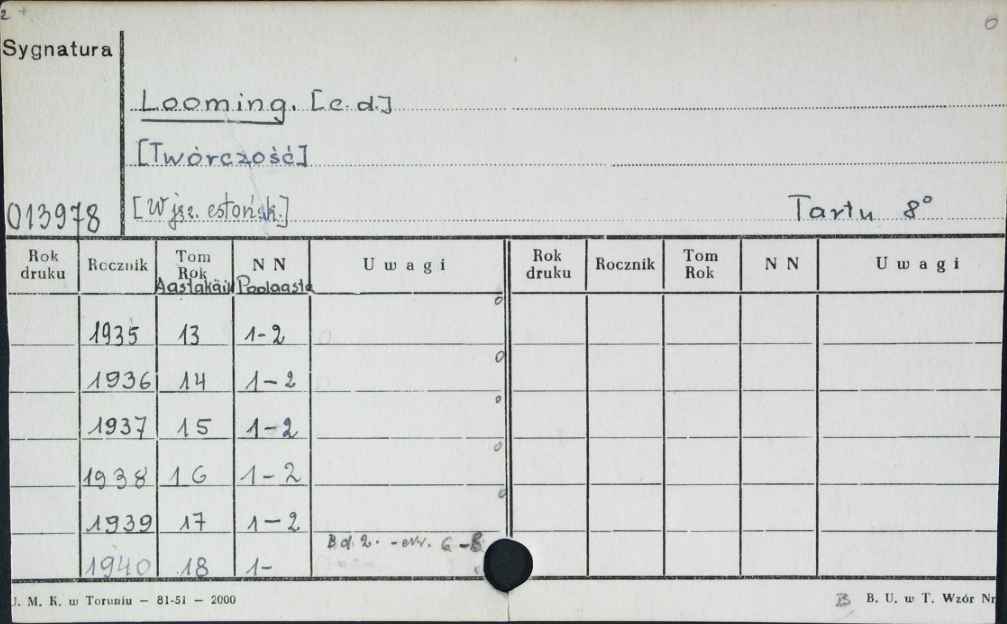 2 +
Sygnatura
Looming. [c.d.]
[Twórczość]
013978 [W jęz. estońsk.] Tartu 8°
Rok druku Rocznik Tom Rok N N Uwagi Rok druku Rocznik Tom Rok N N Uwagi
Aastakäik Poolaasta
1935 13 1-2
1936 14 1-2
1937 15 1-2
1938 16 1-2
1939 17 1-2
Bd. 2.
1940 18 1-
J. M. K. w Toruniu — 81-51 — 2000
B. U. w T. Wzór Nr